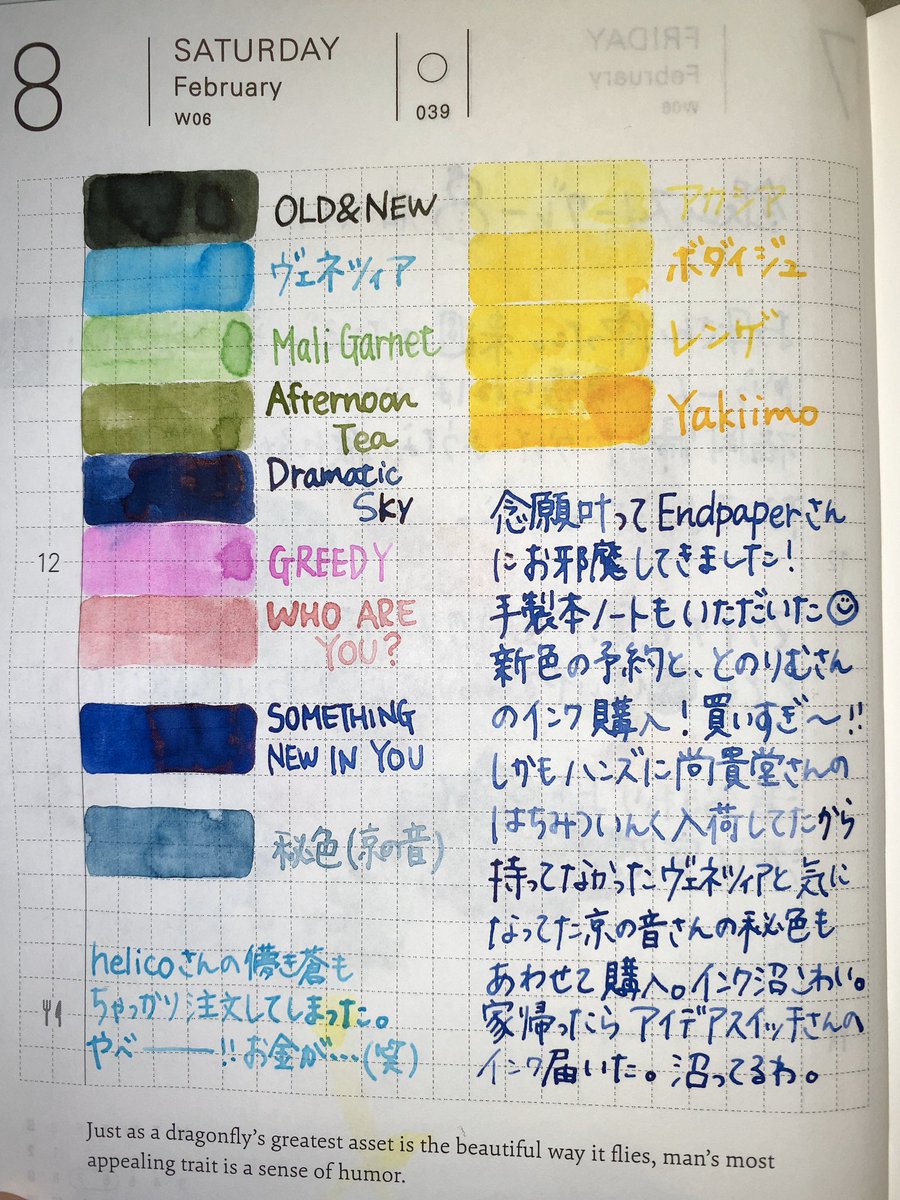 8
SATURDAY
February
W06
039
OLD&NEW
ヴェネツィア
Mali Garnet
Afternoon
Tea
Dramatic
Sky
12
GREEDY
WHO ARE
YOU?
SOMETHING
NEW IN YOU
秘色(京の音)
helicoさんの儚き蒼も
ちゃっかり注文してしまった。
やべー!!お金が…(笑)
アカシア
ボダイジュ
レンゲ
Yakiimo
念願叶ってEndpaperさん
にお邪魔してきました!
手製本ノートもいただいた
新色の予約と、とのりむさん
のインク購入!買いすぎ〜!!
しかもハンズに尚貴堂さんの
はちみついんく入荷してたから
持ってなかったヴェネツィアと気に
なってた京の音さんの秘色も
あわせて購入。インク沼こわい。
家帰ったらアイデアスイッチさんの
インク届いた。沼ってるわ。
Just as a dragonfly's greatest asset is the beautiful way it flies, man's most
appealing trait is a sense of humor.